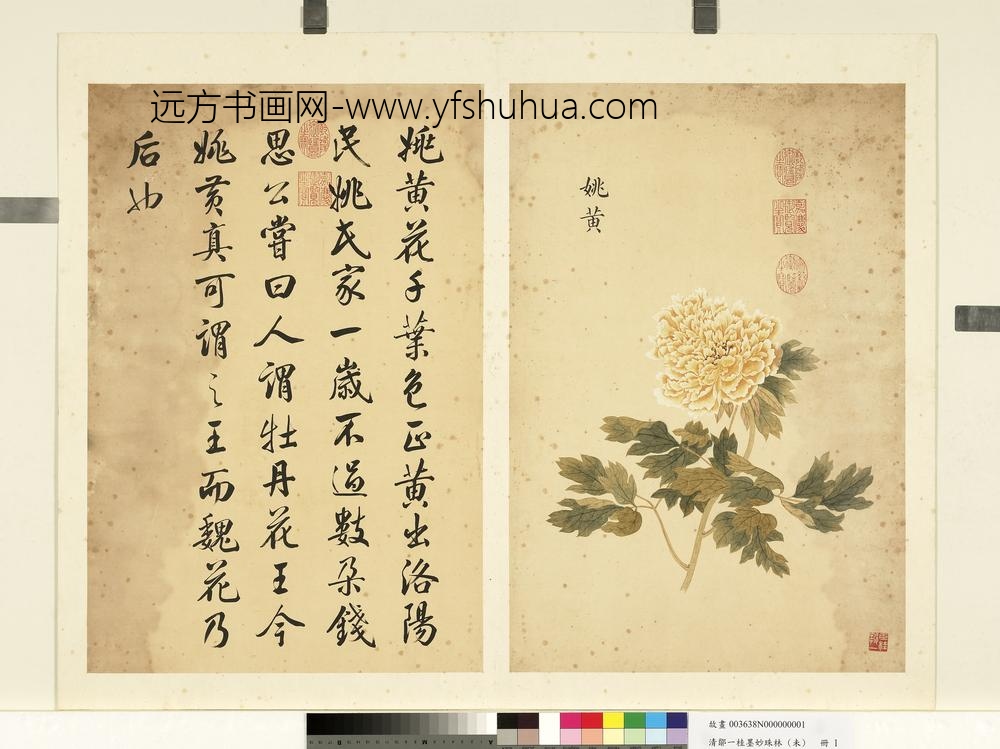 远方书画网-www.yfshuhua.com
姚黄
姚黄花千葉色正黄出洛陽
民姚氏家一歲不過數朵錢
思公嘗曰人謂牡丹花王今
姚黄真可謂之王而魏花乃
后也
故畫 003638N000000001
清鄒一桂墨妙珠林(未) 冊 1